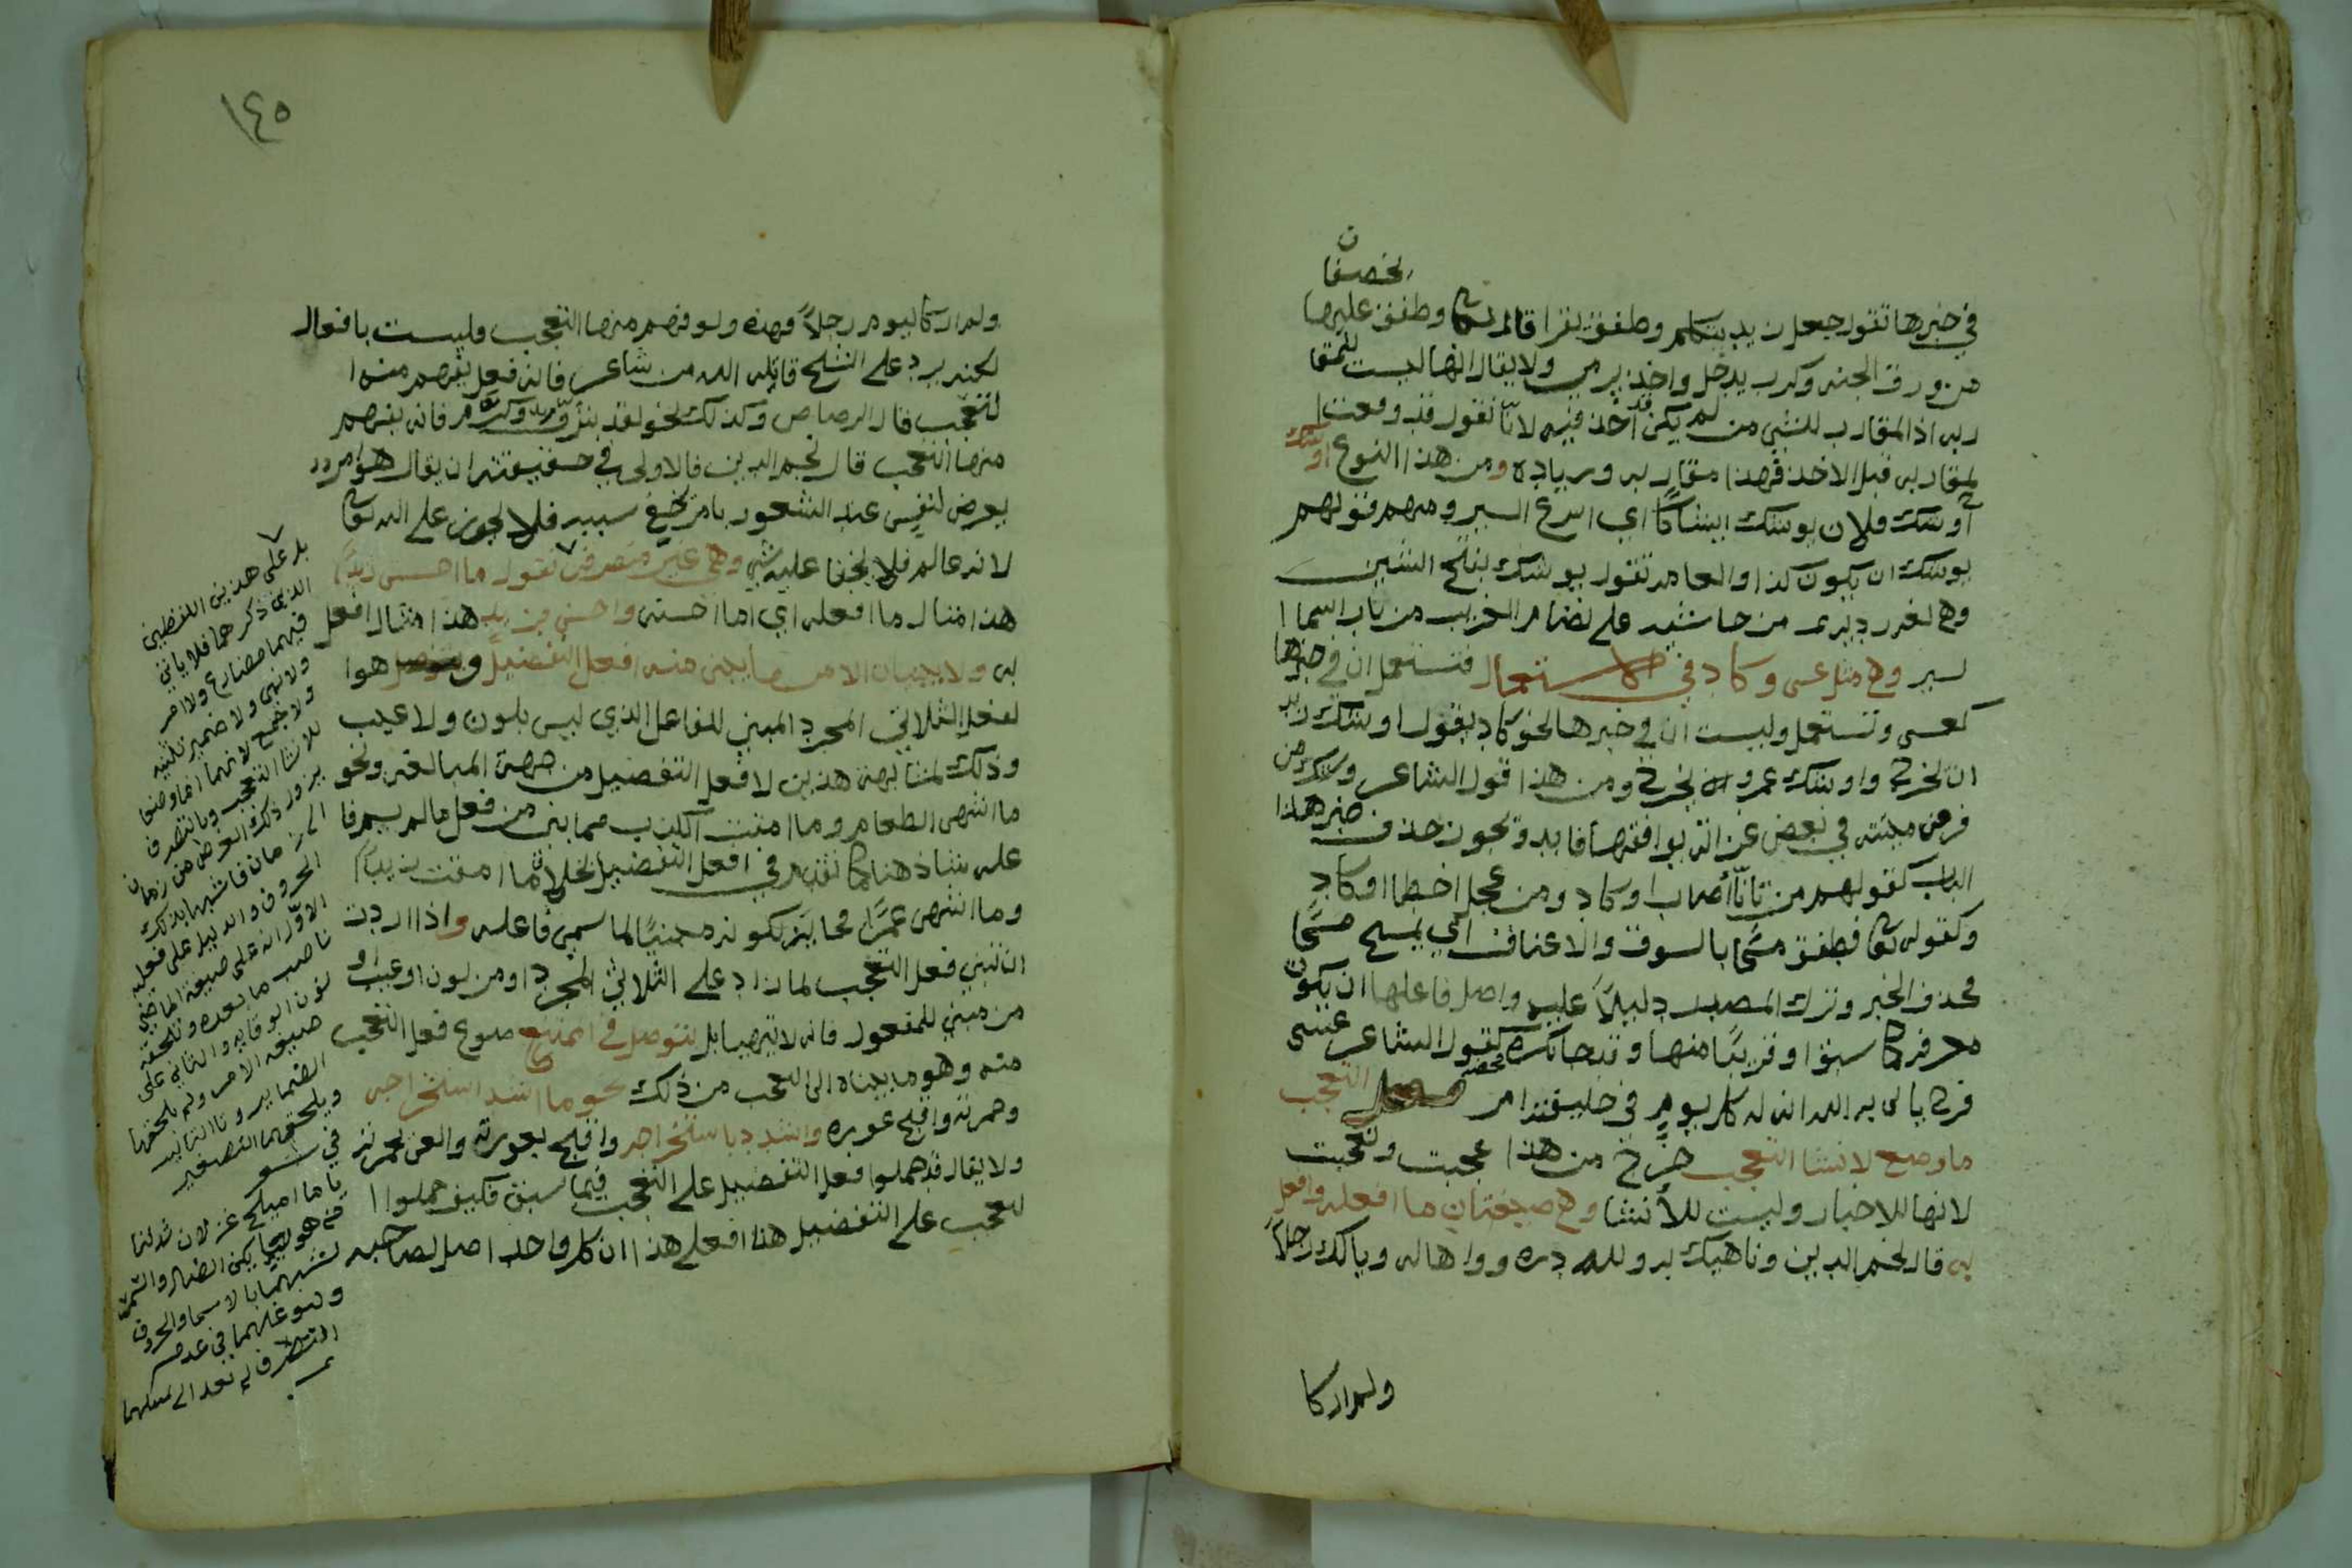 يخصفان
في خبرها تقول جعل زيد يتكلم وطفق يقرا قال تعالى وطفق عليهما
من ورق الجنه وكرب يدخل واخذ يرمي ولا يقال انها ليست للمقا
ربه اذ المقارب للشي من لم يكن قد أخذ فيه لانا نقول قد وقعت ا
لمقاربه قبل الاخذ فهذا مقاربه وزياده ومن هذا النوع اوشك
أوشك فلان يوشك ايشاكًا اي اسرع السير ومنهم قولهم
يوشك ان يكون كذا والعامه تقول يوشك بفتح الشين
وهي لغه رديه من حاشيه على نظام الغريب من باب اسما ا
لسير وهي مثل عسى وكاد في الاستعمال فتستعمل ان في خبرها
كعسى وتستعمل وليست ان في خبرها نحو كاد يقول اوشك زيد
ان يخرج واوشك عمرو يخرج ومن هذا قول الشاعر يوشك من
فر من ميتته في بعض غراته يوافقها فايده ويجوز حذف خبر هذا
الباب كقولهم من تأنّا أصاب اوكاد ومن عجل اخطا اوكاد
وكقوله تعالى فطفق مسحًا بالسوق والاعناق اي يمسح مسحًا
فحذف الخبر وترك المصدر دليلًا عليه واصل فاعلها ان يكون
معرفه كما سبق او قريبًا منها وقد جا نكره محضه كقول الشاعر عسى
فرج ياتي به الله انه له كل يومٍ في خليقته امر فعل التعجب
ما وضع لانشا التعجب خرج من هذا عجبت وتعجبت
لانها للاخبار وليست للأنشا وهي صيغتان ما افعله وافعل
به قال نجم الدين وناهيك به ولله دره وواها له ويالك رجلًا
ولم ار كا
١٤٥
ولم ار كاليوم رجلًا فهذه ولو فهم منها التعجب فليست بافعال
لكنه يرد على الشيخ قاتله الله من شاعر فانه فعل يفهم منه ا
لتعجب قال الرصاص وكذلك نحو لقد بزّ وكرم فانه يفهم
منها التعجب قال نجم الدين فالاولى في حقيقته ان يقال هو امر
يعرض لنفس عند الشعور بامر يخفى سببه فلا يجوز على الله تعالى
لانه عالم فلا يخفا عليه شي وهي غير متصرفه نقول ما احسن زيدًا
هذا مثال ما افعله اي اما احسنه واحسن بزيد هذا مثال افعل
به ولا يبنيان الا مما يبنى منه افعل التفضيل هو ا
لفعل الثلاثي المجرد المبني للفاعل الذي ليس بلون ولا عيب
وذلك لمشابهة هذين لافعل التفضيل من جهة المبالغه ونحو
ما اشهى الطعام وما امقت الكذب مما بني من فعل ما لم يسم فا
عله شاذ هنا كما تقدم في افعل التفضيل بخلاف ما امقت زيدًا
وما اشهى عمرًا فجايز لكونه مبنيًا لما سمي فاعله واذا اردت
ان تبني فعل التعجب لما زاد على الثلاثي المجرد او من لون او عيب او
من مبني للمفعول فانه لا يتهيا بل يتوصل في الممتنع صوغ فعل التعجب
منه وهو ما بيناه الى التعجب من ذلك نحو ما اشد استخراجه
وحمرته واقبح عوره واشدد باستخراجه واقبح بعوره
ولا يقال قد حملوا فعل التفضيل على التعجب فيما سبق فكيف حملوا ا
لتعجب على التفضيل هنا افعلي هذا ان كل واحد اصل لصاحبه
بل على هذين اللفظين
الذي ذكرهما فلا ياتي
فيهما مضارع ولا امر
ولا نهي ولا ضمير تثنيه
ولا جمع لانهما انما وضعا
للانشا التعجب وبالتصرف
يزول ذلك الغرض من زمان
الى زمان فاشبها بذلك
الحروف والدليل على فعليه
الاوّل انه على صيغة الماضي
ناصب ما بعده وتلحقه
نون الوقايه والثاني على
صيغه الامر ولم يلحقها
الضماير وتا التانيث
ويلحقهما التصغير
في نحو
يا ما اميلح غزلان شدن لنا
من هوليا يكن الضال والسمر
لشبههما بالاسما والحروف
وتوغلهما في عدم
التصرف